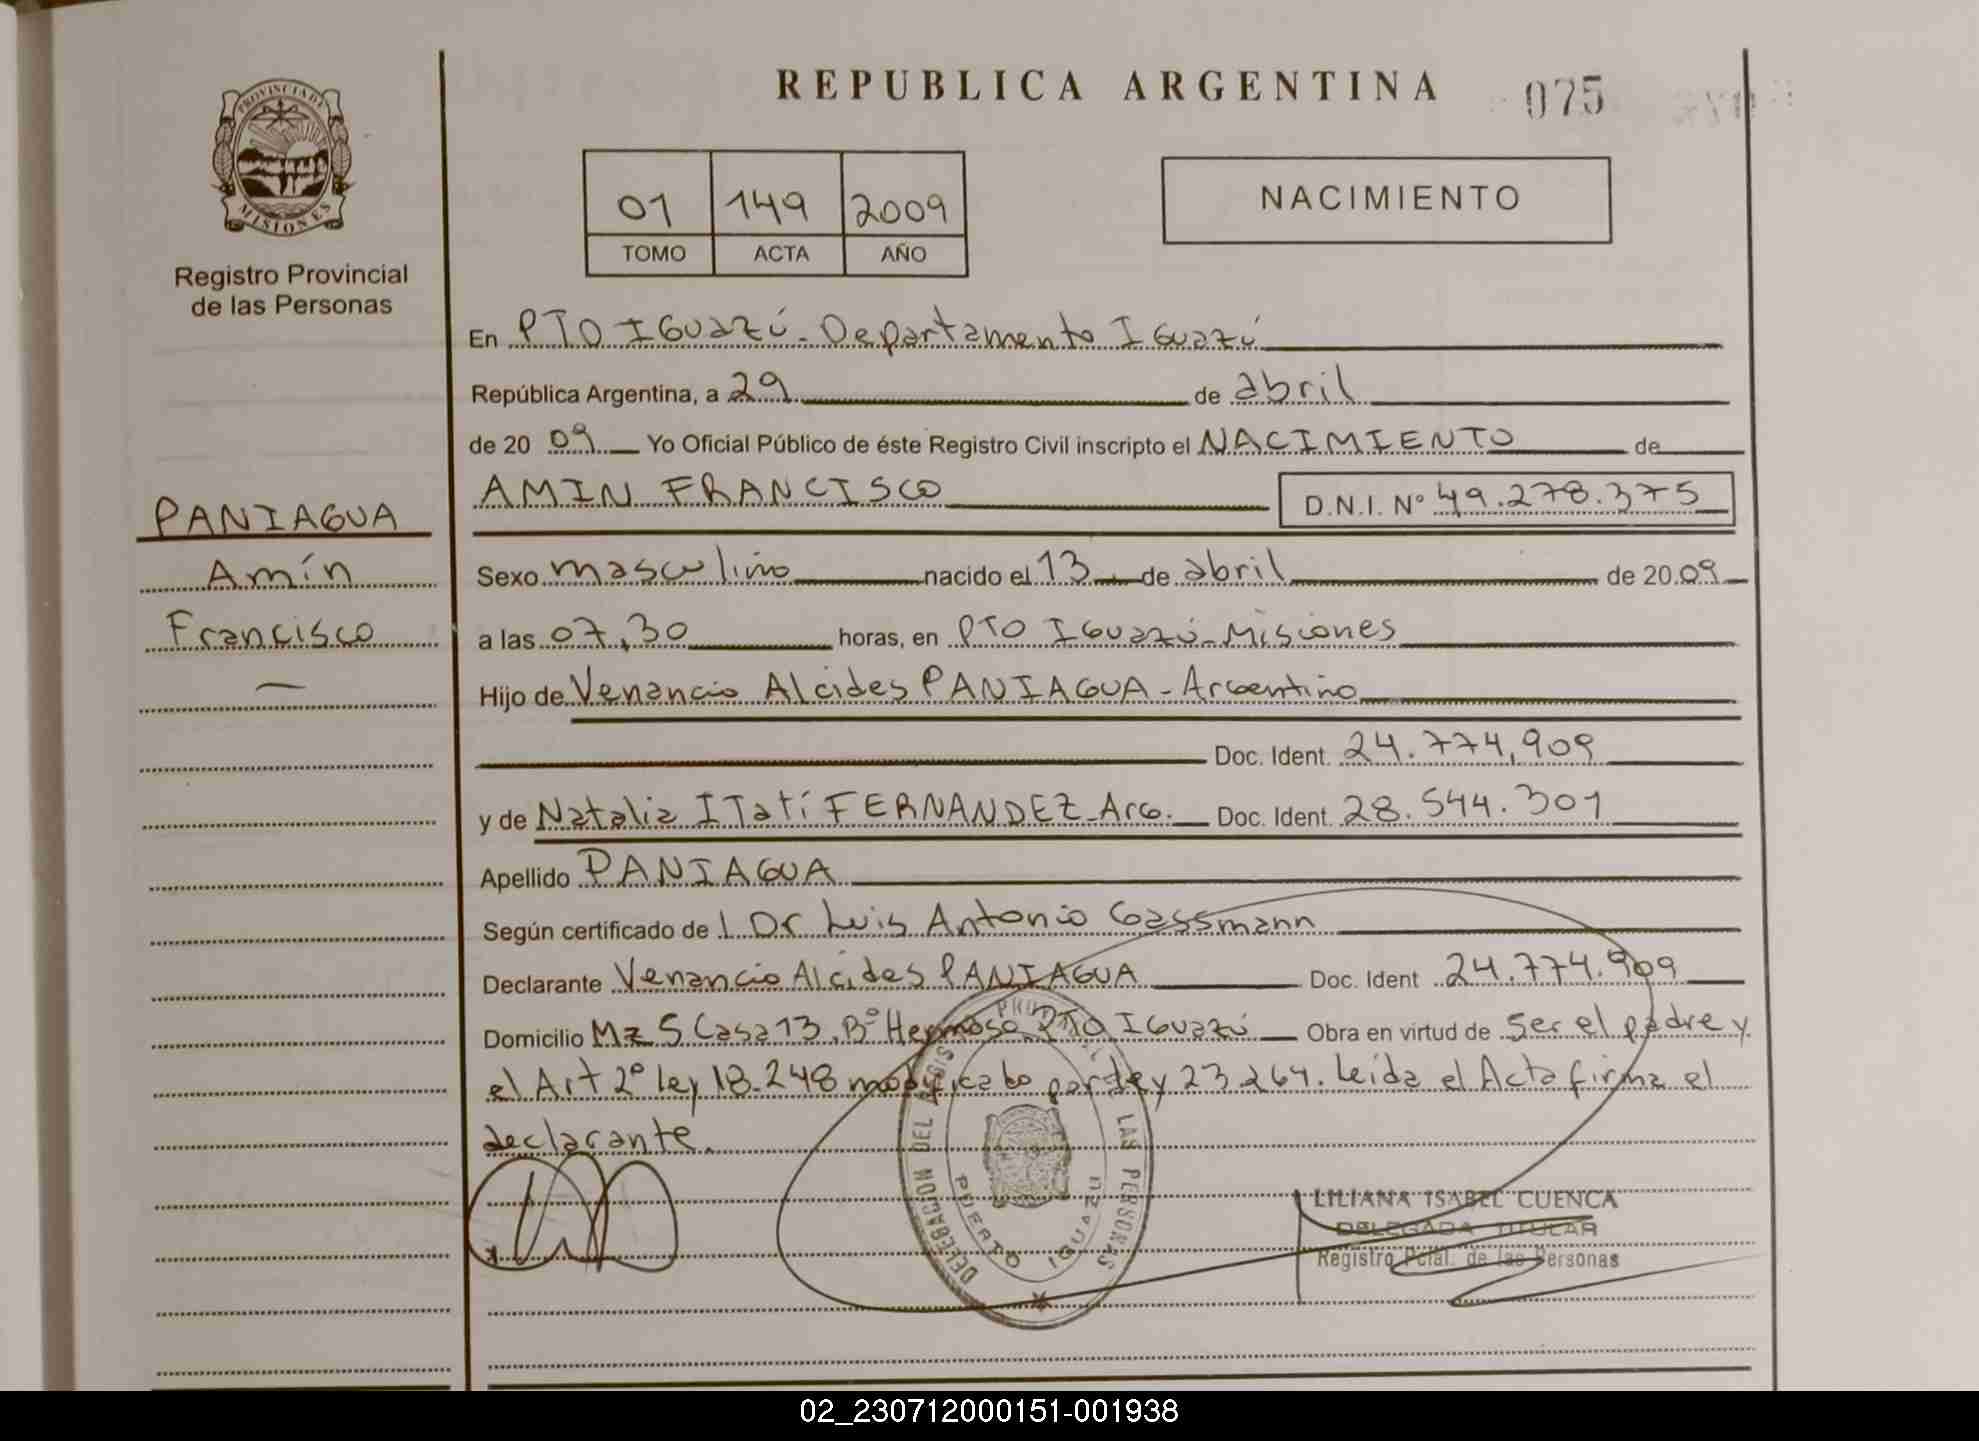 REPUBLICA ARGENTINA
075
PROVINCIA DE
MISIONES
Registro Provincial
de las Personas
01 149 2009
TOMO ACTA AÑO
NACIMIENTO
En PTO IGuazú - Departamento IGuazú
República Argentina, a 29 de abril
de 20 09 Yo Oficial Público de éste Registro Civil inscripto el NACIMIENTO de
AMIN FRANCISCO D.N.I. Nº 49.278.375
PANIAGUA
Amín
Francisco
Sexo masculino nacido el 13 de abril de 20 09
a las 07,30 horas, en PTO IGuazú - Misiones
Hijo de Venancio Alcides PANIAGUA - Argentino
Doc. Ident. 24.774,909
y de Natalia ITatí FERNANDEZ - Arg. Doc. Ident. 28.544.301
Apellido PANIAGUA
Según certificado de l Dr Luis Antonio Gassmann
Declarante Venancio Alcides PANIAGUA Doc. Ident 24.774.909
Domicilio Mz 5 Casa 13, Bº Hermoso PTO IGuazú Obra en virtud de ser el padre y
el Art 2º ley 18.248 modificado por ley 23.264. Leída el Acta firma el
declarante.
DELEGACION DEL REGISTRO PROVINCIAL DE LAS PERSONAS
PUERTO IGUAZU
LILIANA ISABEL CUENCA
DELEGADA TITULAR
Registro Pcial. de las Personas
02_230712000151-001938